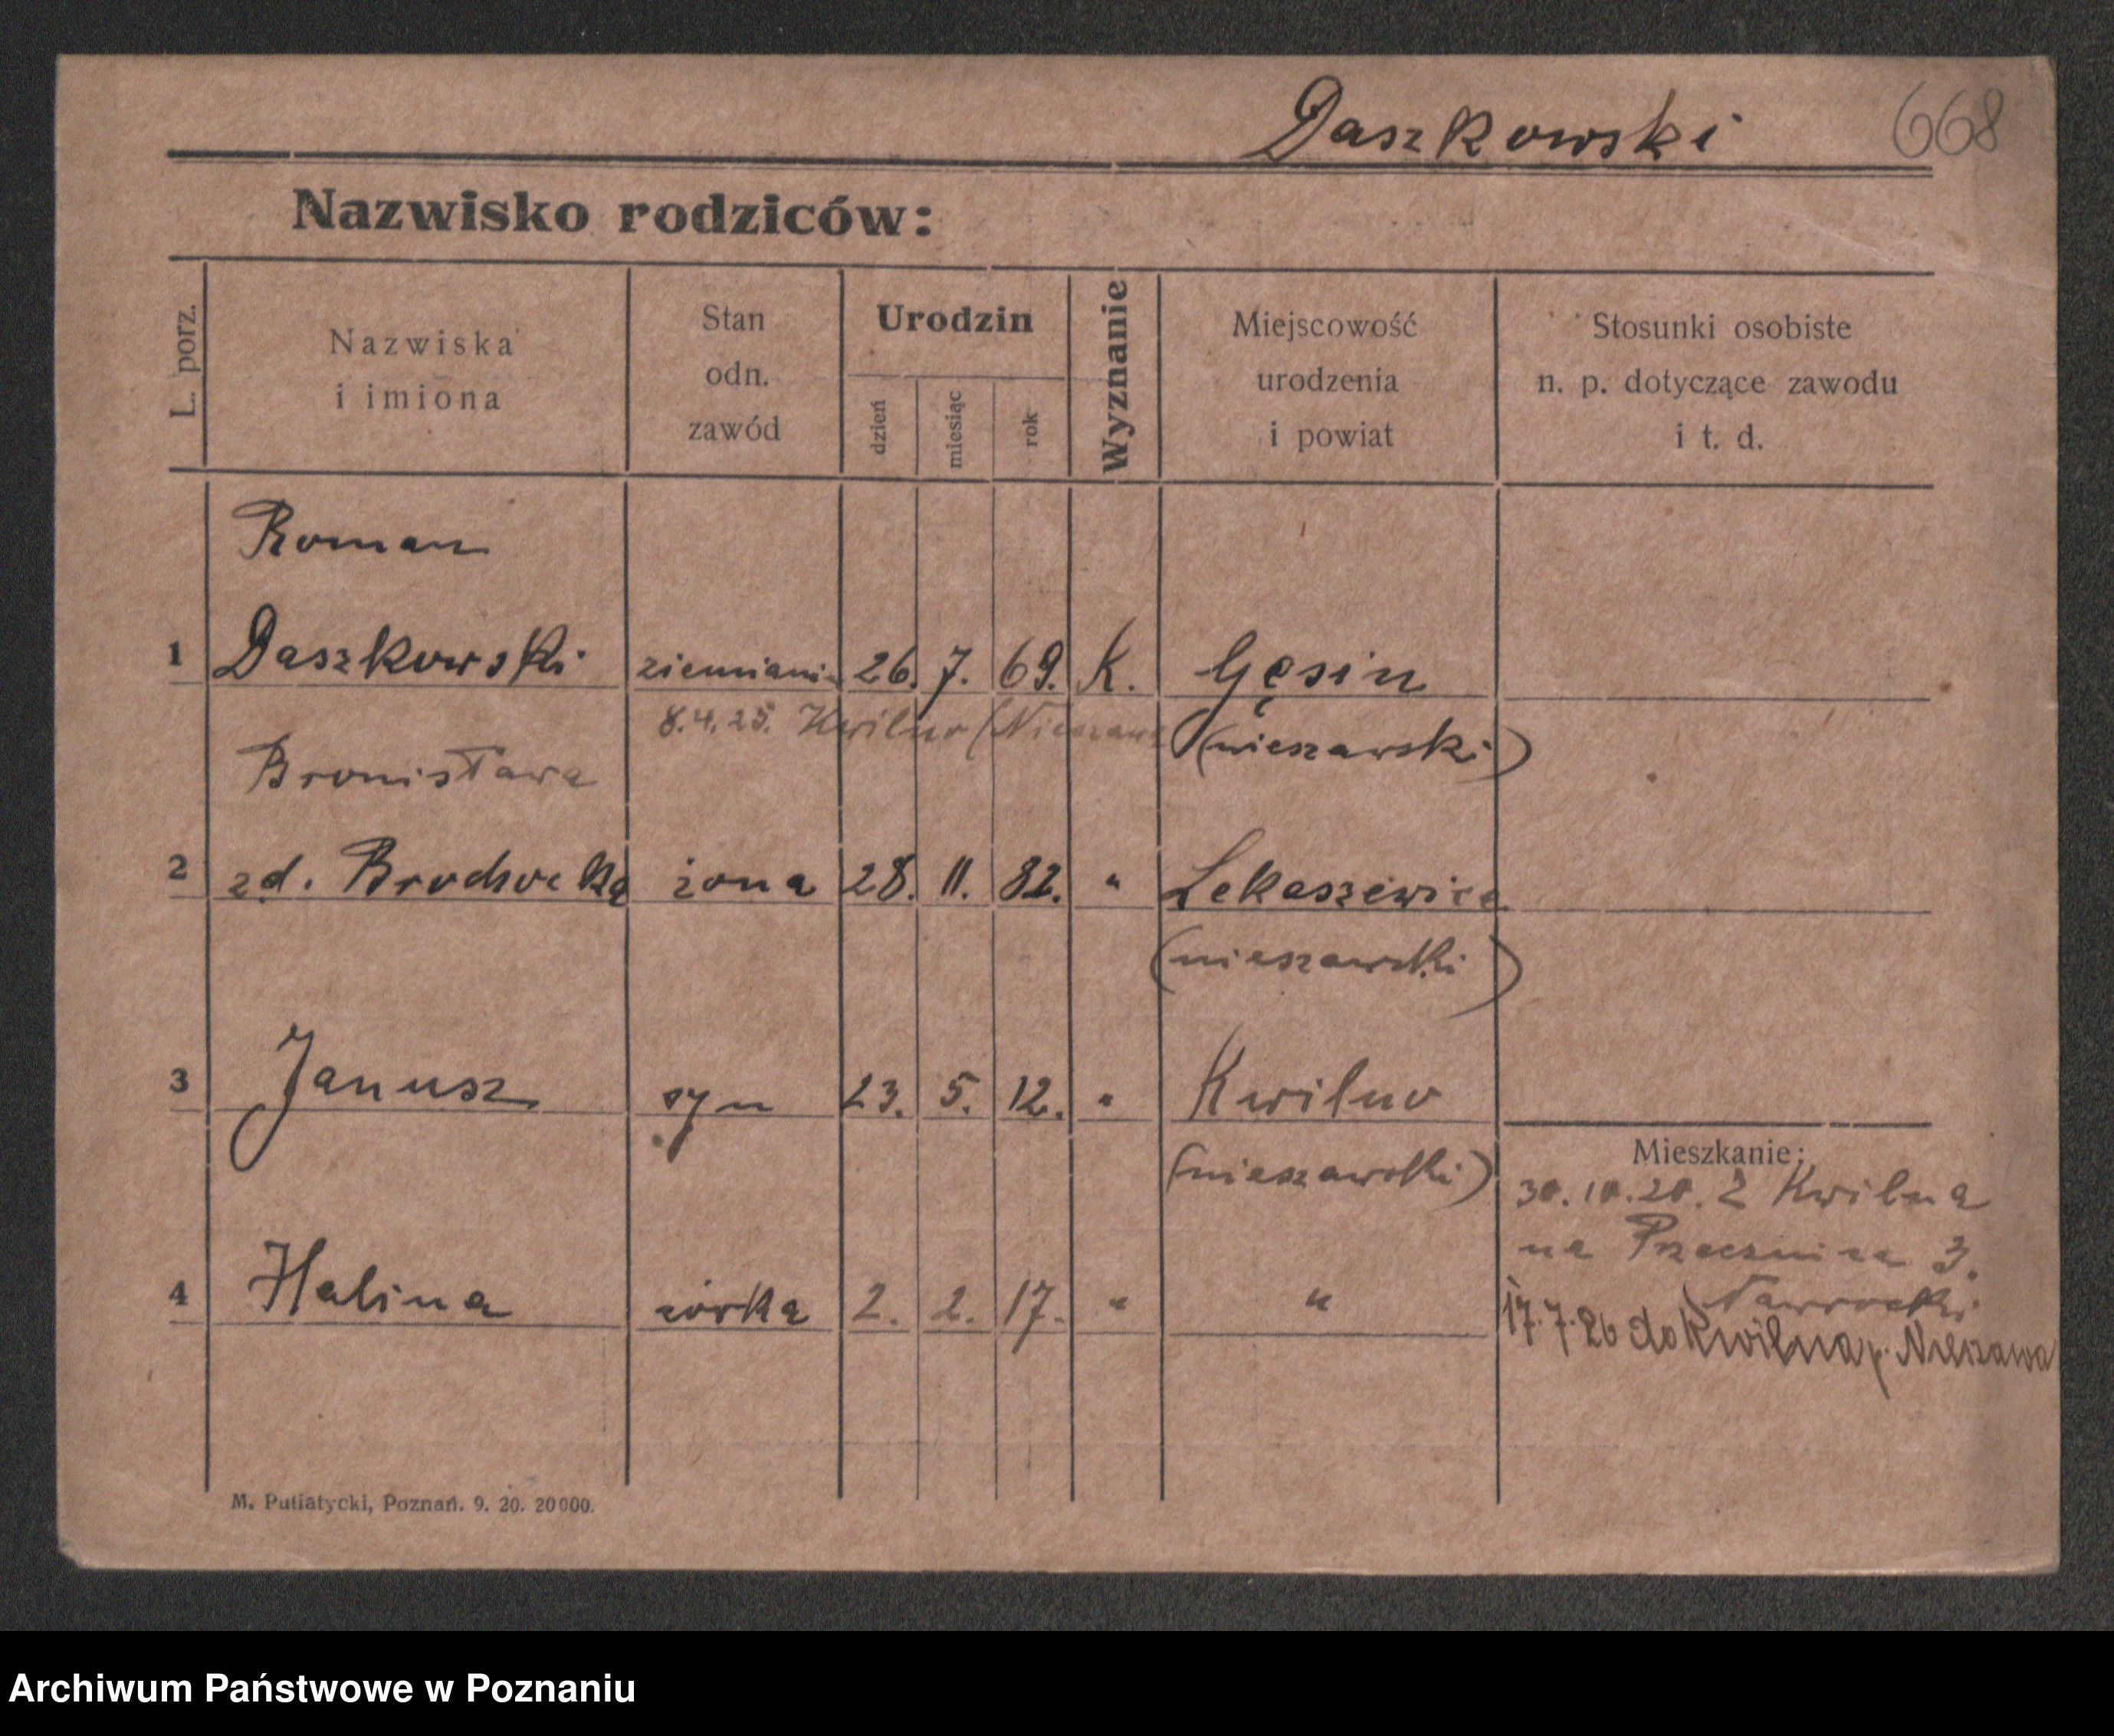 Daszkowski 668
Nazwisko rodziców:
L. porz.
Nazwiska
i imiona
Stan
odn.
zawód
Urodzin
dzień
miesiąc
rok
Wyznanie
Miejscowość
urodzenia
i powiat
Stosunki osobiste
n. p. dotyczące zawodu
i t. d.
Roman
1 Daszkowski ziemianin 26. 7. 69. K. Gęsin
8.4.25. Kwilno (Nieszawa (nieszawski)
Bronisława
2 zd. Brochocka żona 28. 11. 82. "
(nieszawski)
3 Janusz syn 23. 5. 12. " Kwilno
(nieszawski)
4 Halina córka 2. 2. 17. " "
Mieszkanie:
30.10.20. z Kwilna
na Przecznica 3.
Nawrocki
17.7.26 do Kwilna p. Nieszawa
M. Putiatycki, Poznań. 9. 20. 20000.
Archiwum Państwowe w Poznaniu